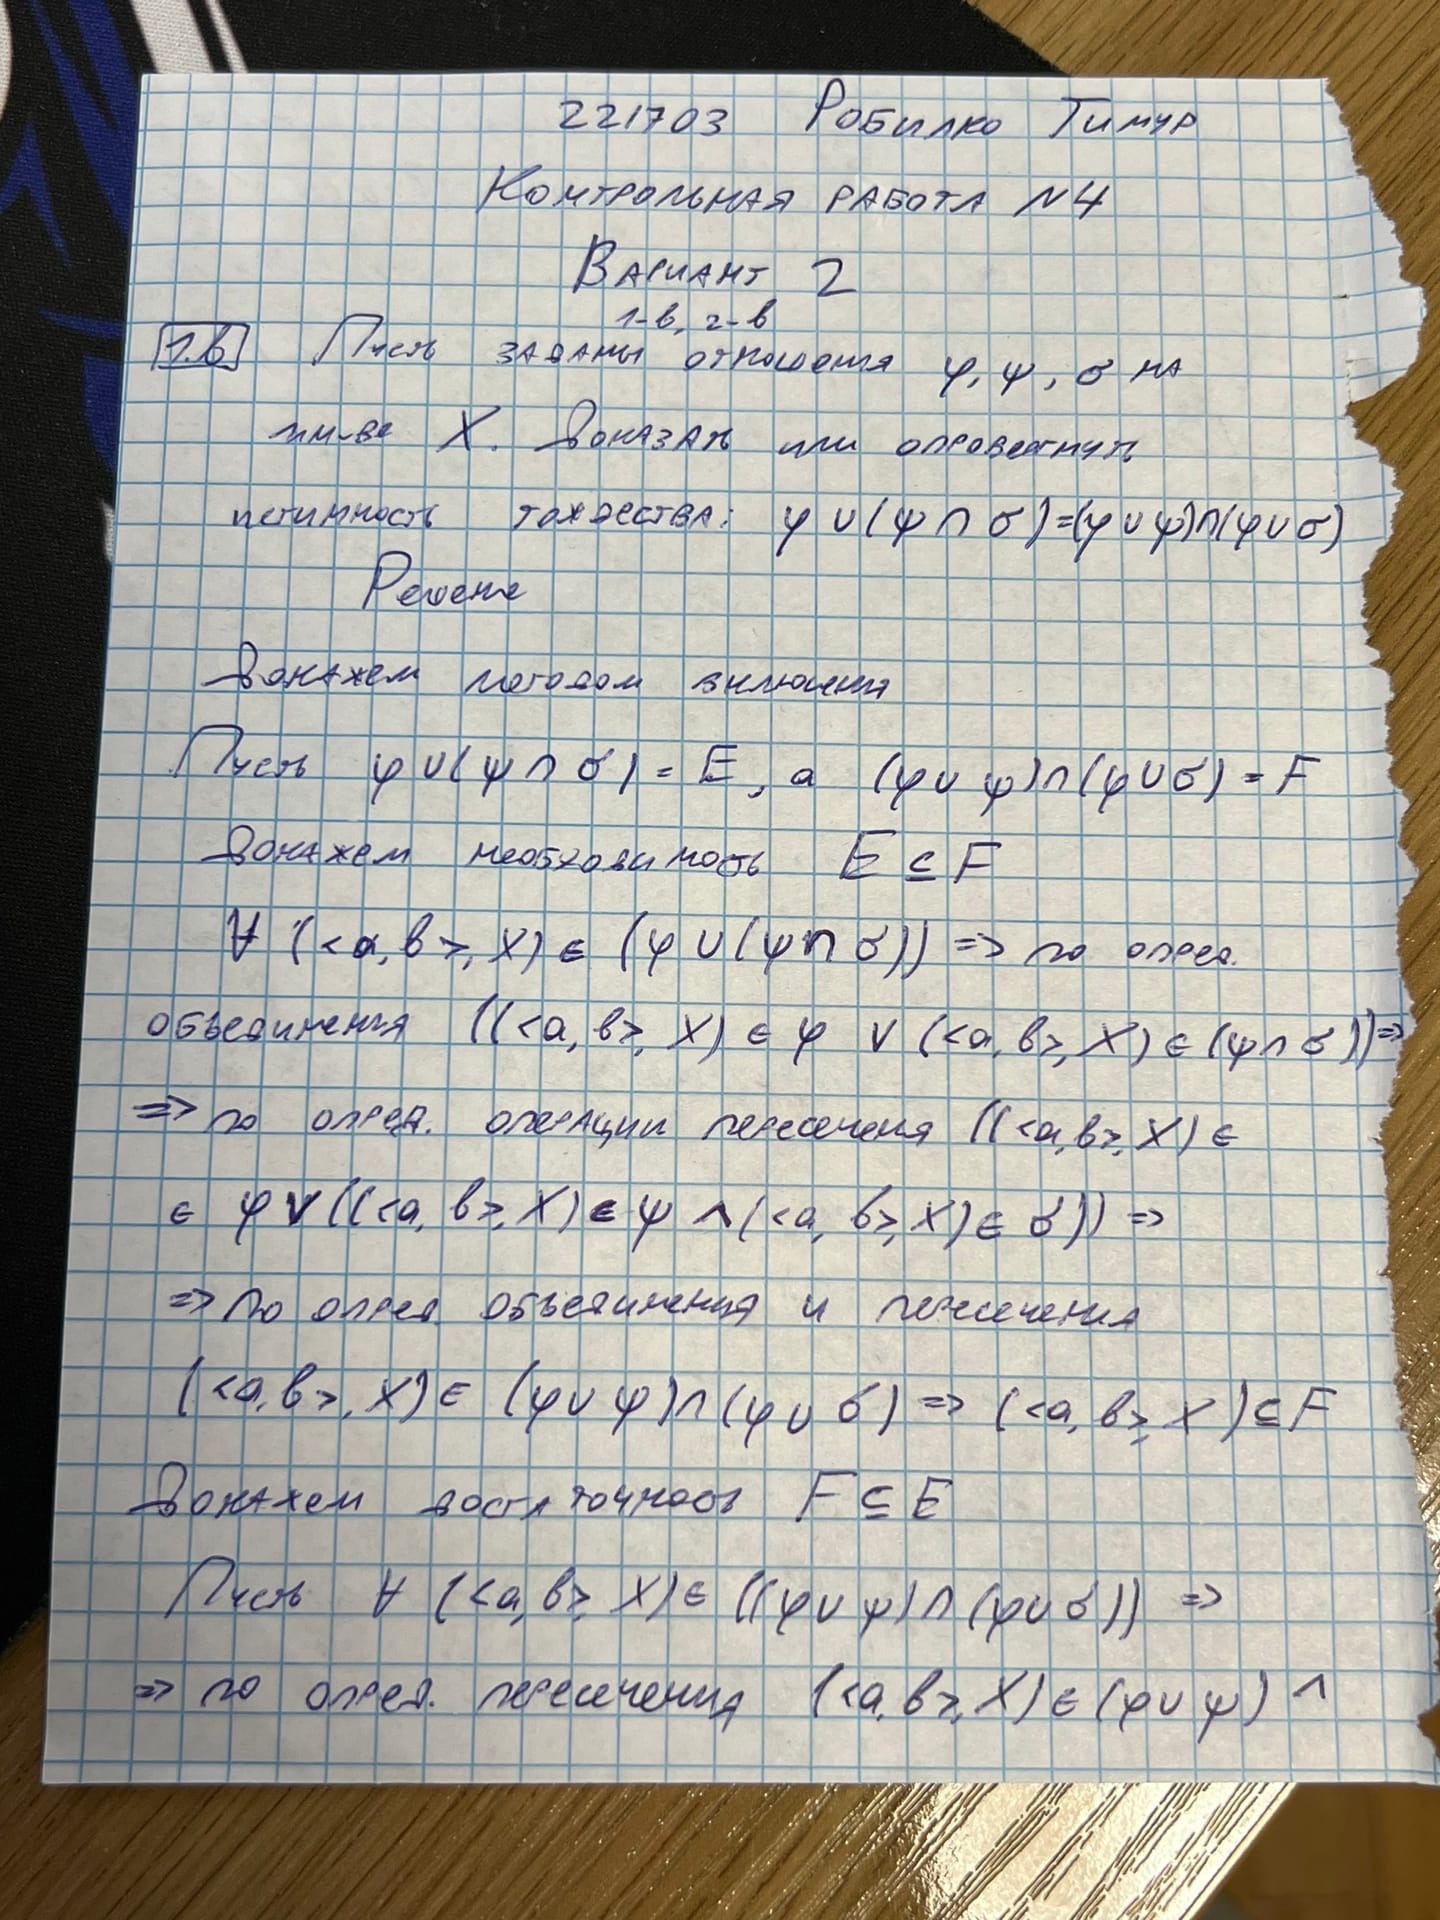 221703 Робилко Тимур
Контрольная работа №4
Вариант 2
1-в, 2-в
1.в Пусть заданы отношения φ, ψ, σ на
мн-ве X. Доказать или опровергнуть
истинность тождества: φ ∪ (ψ ∩ σ) = (φ ∪ ψ) ∩ (φ ∪ σ)
Решение
Докажем методом включения
Пусть φ ∪ (ψ ∩ σ) = E, а (φ ∪ ψ) ∩ (φ ∪ σ) = F
Докажем необходимость E ⊆ F
∀ (<a, b>, X) ∈ (φ ∪ (ψ ∩ σ)) => по опред.
объединения ((<a, b>, X) ∈ φ ∨ (<a, b>, X) ∈ (ψ ∩ σ)) =>
=> по опред. операции пересечения ((<a, b>, X) ∈
∈ φ ∨ ((<a, b>, X) ∈ ψ ∧ (<a, b>, X) ∈ σ)) =>
=> По опред. объединения и пересечения
(<a, b>, X) ∈ (φ ∪ ψ) ∩ (φ ∪ σ) => (<a, b>, X) ⊆ F
Докажем достаточность F ⊆ E
Пусть ∀ (<a, b>, X) ∈ ((φ ∪ ψ) ∩ (φ ∪ σ)) =>
=> по опред. пересечения (<a, b>, X) ∈ (φ ∪ ψ) ∧